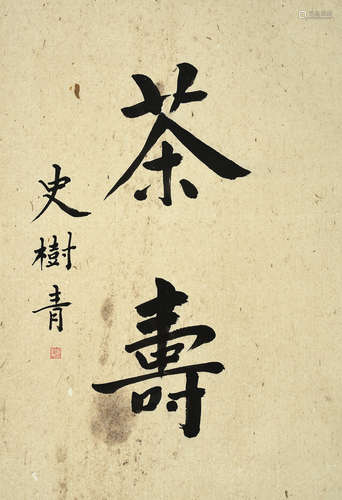 茶壽
史樹青